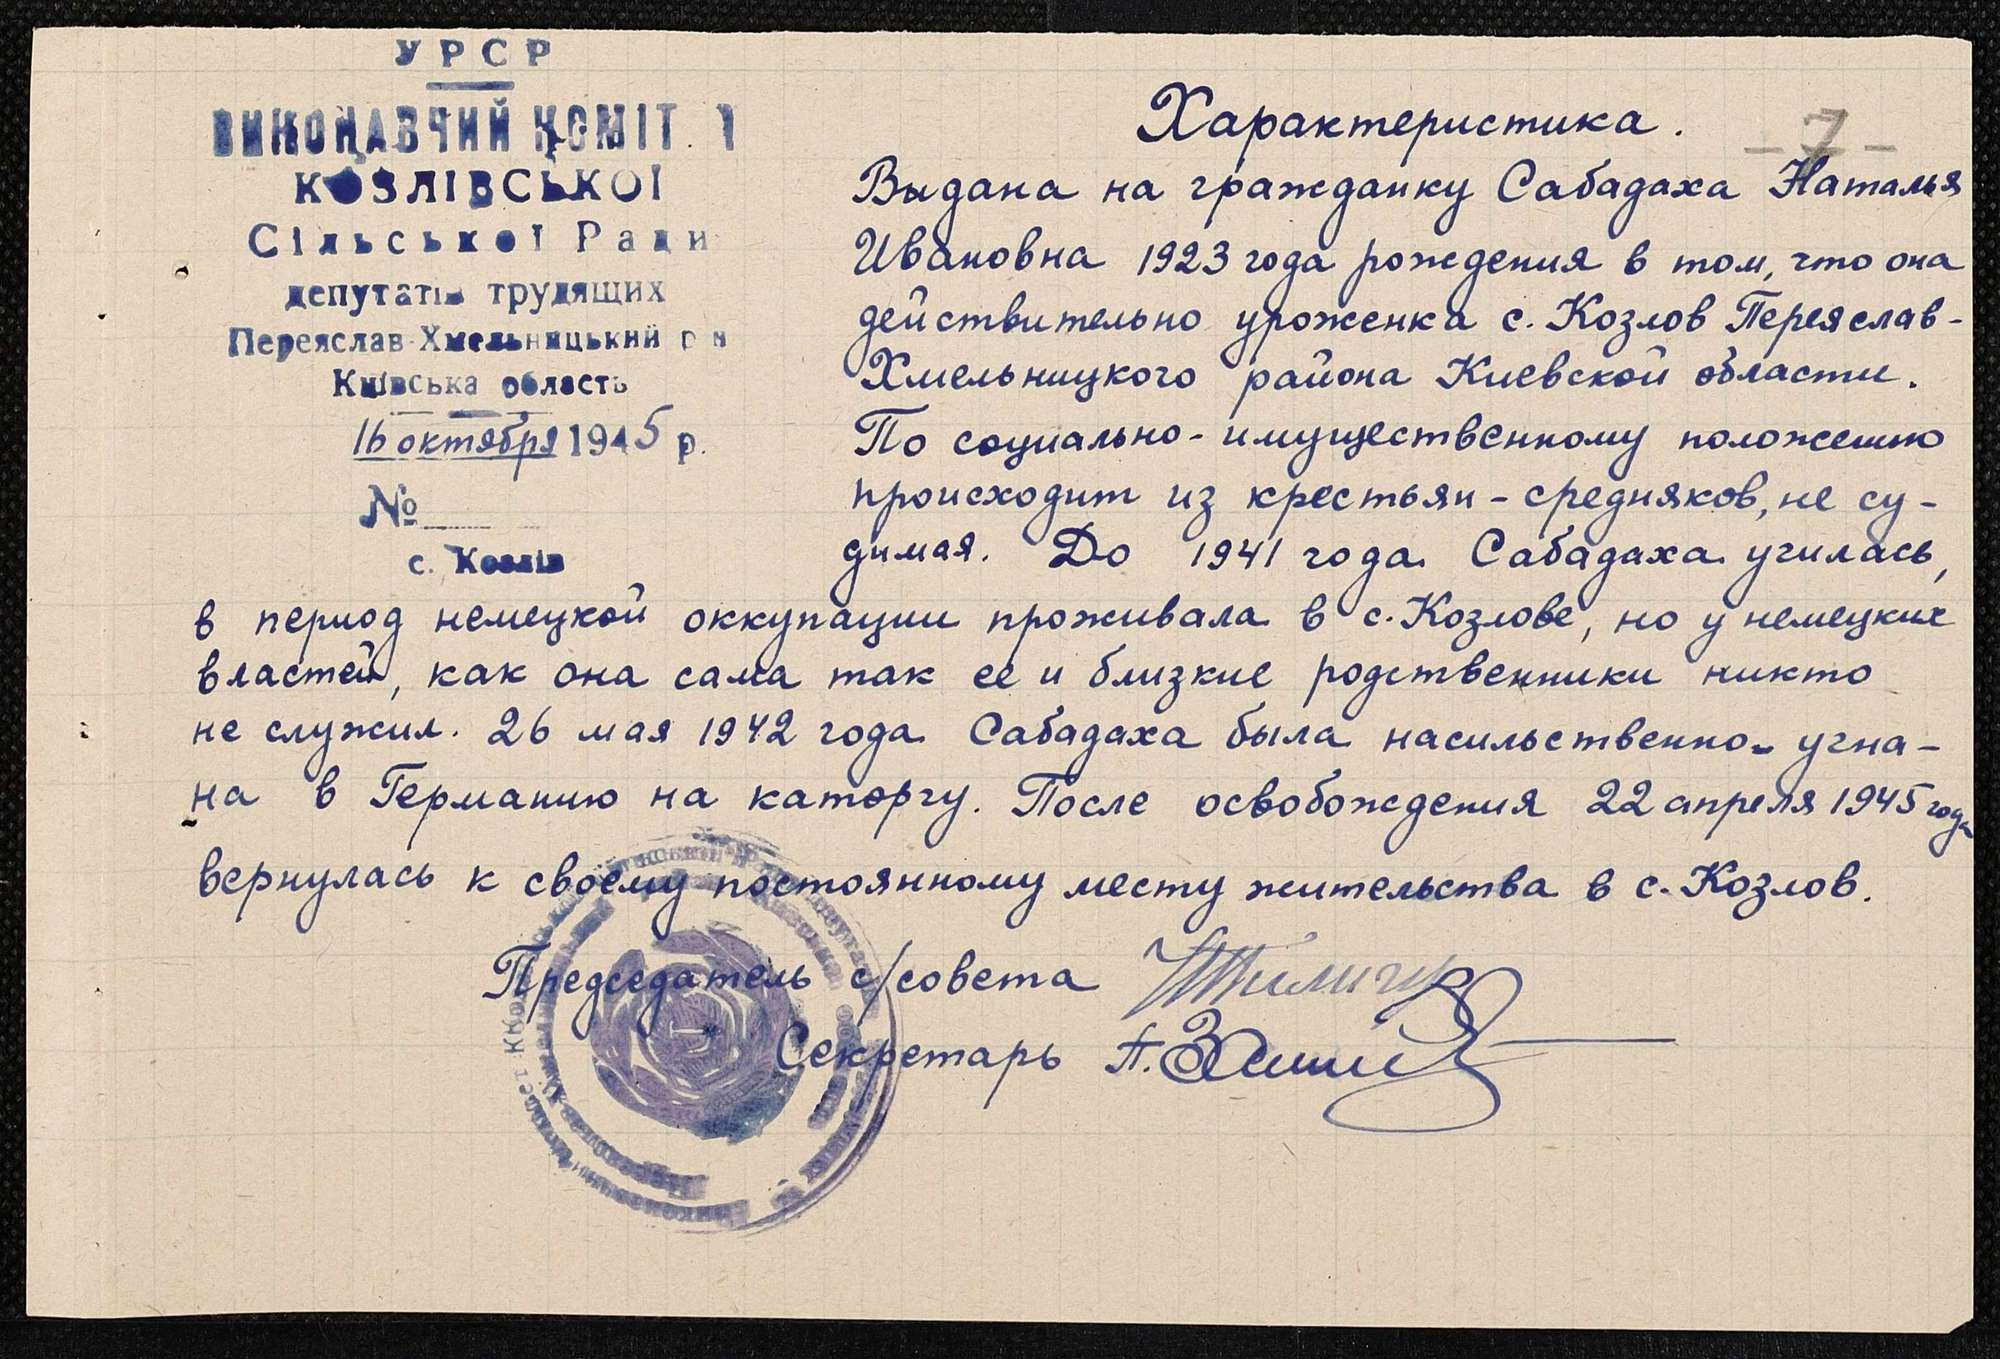 УРСР
ВИКОНАВЧИЙ КОМІТ
КОЗЛІВСЬКОЇ
Сільської Ради
депутатів трудящих
Переяслав-Хмельницький р н
Київська область
16 октября 1945 р.
№
с. Козлів
7
Характеристика.
Выдана на гражданку Сабадаха Наталья
Ивановна 1923 года рождения в том, что она
действительно уроженка с. Козлов Переяслав-
Хмельницкого района Киевской области.
По социально-имущественному положению
происходит из крестьян-средняков, не су-
димая. До 1941 года Сабадаха училась,
в период немецкой оккупации проживала в с. Козлове, но у немецких
властей, как она сама так ее и близкие родственники никто
не служил. 26 мая 1942 года Сабадаха была насильственно угна-
на в Германию на каторгу. После освобождения 22 апреля 1945 года
вернулась к своему постоянному месту жительства в с. Козлов.
Председатель с/совета
Секретарь П.